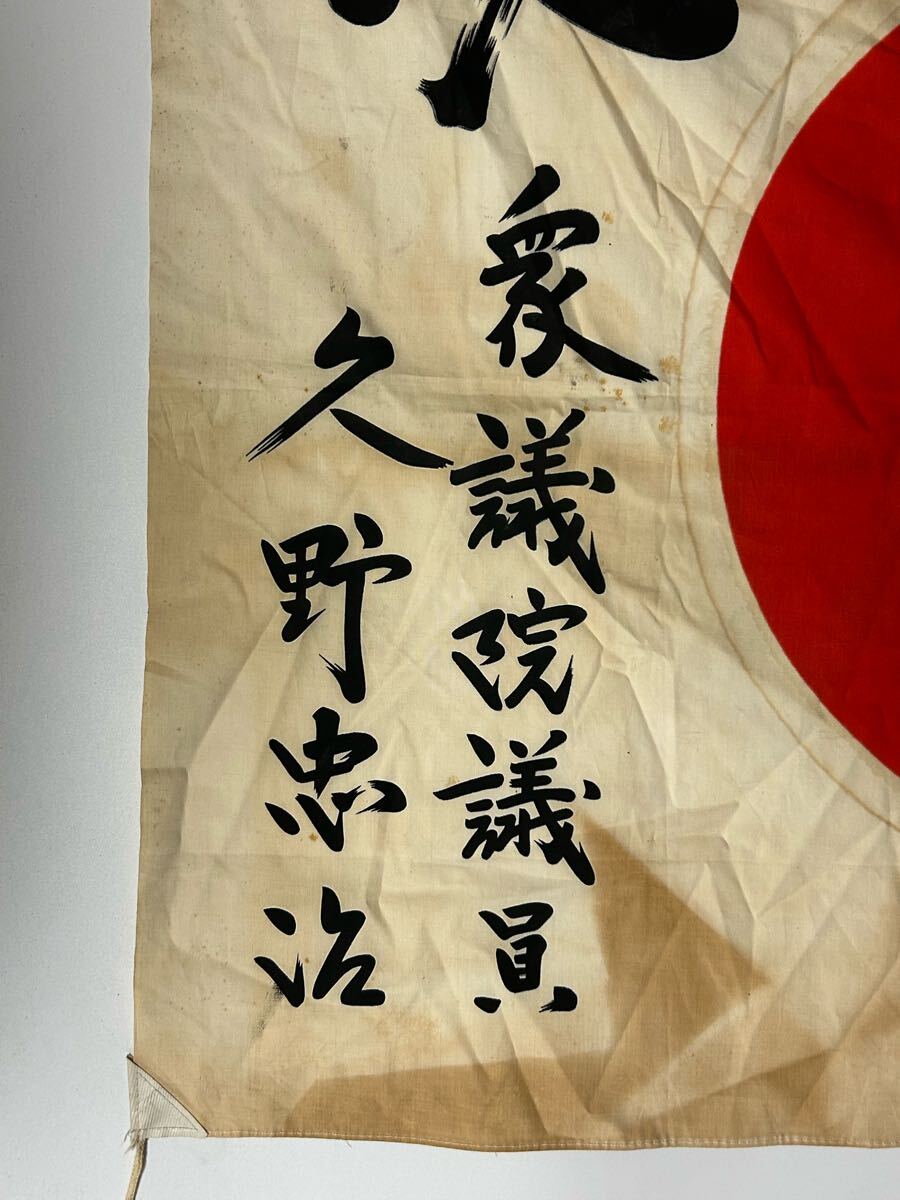 衆議院議員
久野忠治